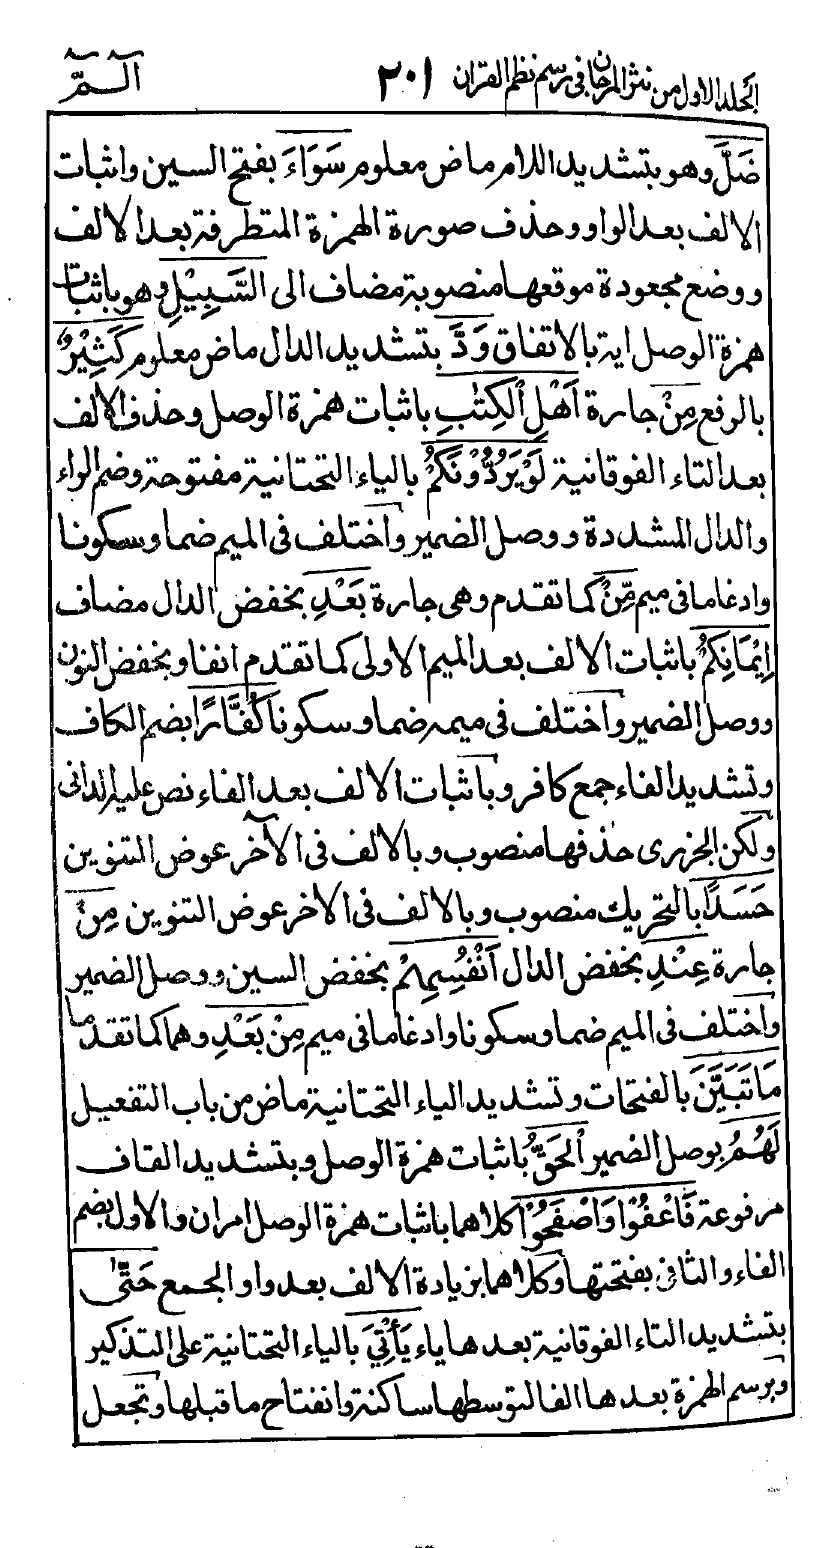 المجلد الاول من نثر المرجان فى رسم نظم القران ٢٠١ الٓـمّٓ
ضَلَّ وهو بتشديد اللام ماض معلوم سَوَاءَ بفتح السين واثبات
الالف بعد الواو وحذف صورة الهمزة المتطرفة بعد الالف
ووضع مجعودة موقعها منصوبة مضاف الى السَّبِيْلِ وهو باثبات
همزة الوصل اية بالاتفاق وَدَّ بتشديد الدال ماض معلوم كَثِيْرٌ
بالرفع مِنْ جارة اَهْلِ الْكِتٰبِ باثبات همزة الوصل وحذف الالف
بعد التاء الفوقانية لَوْ يَرُدُّوْنَكُمْ بالياء التحتانية مفتوحة وضم الراء
والدال المشددة ووصل الضمير واختلف فى الميم ضما وسكونا
وادغاما فى ميم مِّنْ كما تقدم وهى جارة بَعْدِ بخفض الدال مضاف
اِيْمَانِكُمْ باثبات الالف بعد الميم الاولى كما تقدم انفا وبخفض النون
ووصل الضمير واختلف فى ميمه ضما وسكونا كُفَّارًا بضم الكاف
وتشديد الفاء جمع كافر وباثبات الالف بعد الفاء نص عليه الدانى
ولكن الجزرى حذفها منصوب وبالالف فى الآخر عوض التنوين
حَسَدًا بالتحريك منصوب وبالالف فى الاخر عوض التنوين مِنْ
جارة عِنْدِ بخفض الدال اَنْفُسِهِمْ بخفض السين ووصل الضمير
واختلف فى الميم ضما وسكونا وادغاما فى ميم مِنْ بَعْدِ وهما كما تقدما
مَا تَبَيَّنَ بالفتحات وتشديد الياء التحتانية ماض من باب التفعيل
لَهُمُ بوصل الضمير الْحَقُّ باثبات همزة الوصل وبتشديد القاف
مرفوعة فَاعْفُوْا وَاصْفَحُوْا كلاهما باثبات همزة الوصل امران والاول بضم
الفاء والثانى بفتحتها وكلاهما بزيادة الالف بعد واو الجمع حَتّٰى
بتشديد التاء الفوقانية بعدها ياء يَأْتِيَ بالياء التحتانية على التذكير
وبرسم الهمزة بعدها الفا لتوسطها ساكنة وانفتاح ما قبلها وتجعل